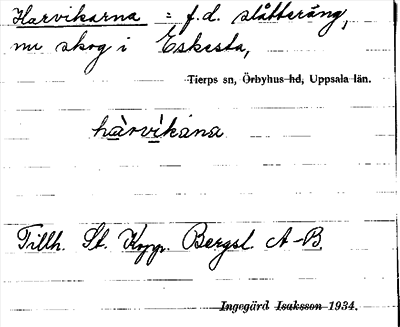 Harvikarna = f.d. slåtteräng,
nu skog i Eskesta,
Tierps sn, Örbyhus hd, Uppsala län.
hàrvìkàna
Tillh. St. Kopp. Bergsl. A-B.
Ingegärd Isaksson 1934.